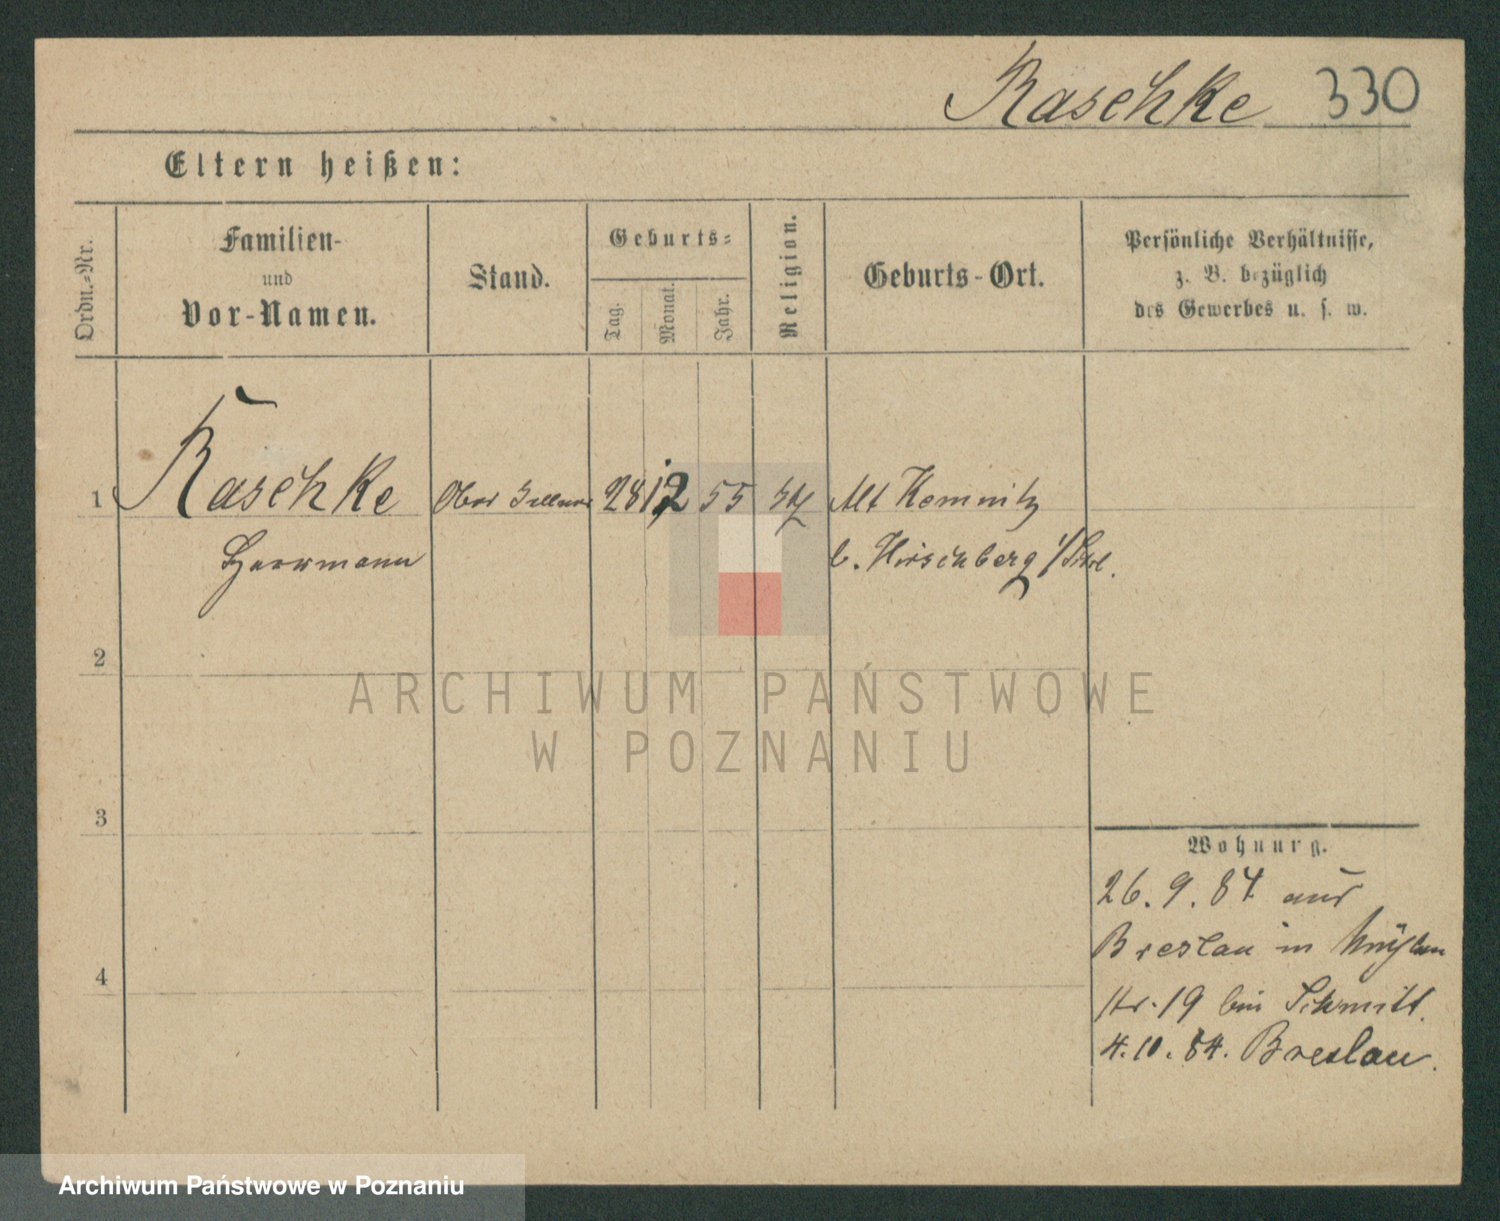 Raschke 330
Eltern heißen:
Ordn.-Nr.
Familien-
und
Vor-Namen.
Stand.
Geburts-
Tag.
Monat.
Jahr.
Religion.
Geburts-Ort.
Persönliche Verhältnisse,
z. B. bezüglich
des Gewerbes u. s. w.
1 Raschke Ober 28 12 55 Alt Kemnitz
Herrmann b. Hirschberg i/Schl.
2
3
4
Wohnung.
26. 9. 84 aus
Breslau in Mühlen
str. 19 bei Schmidt.
4. 10. 84. Breslau.
ARCHIWUM PAŃSTWOWE
W POZNANIU
Archiwum Państwowe w Poznaniu